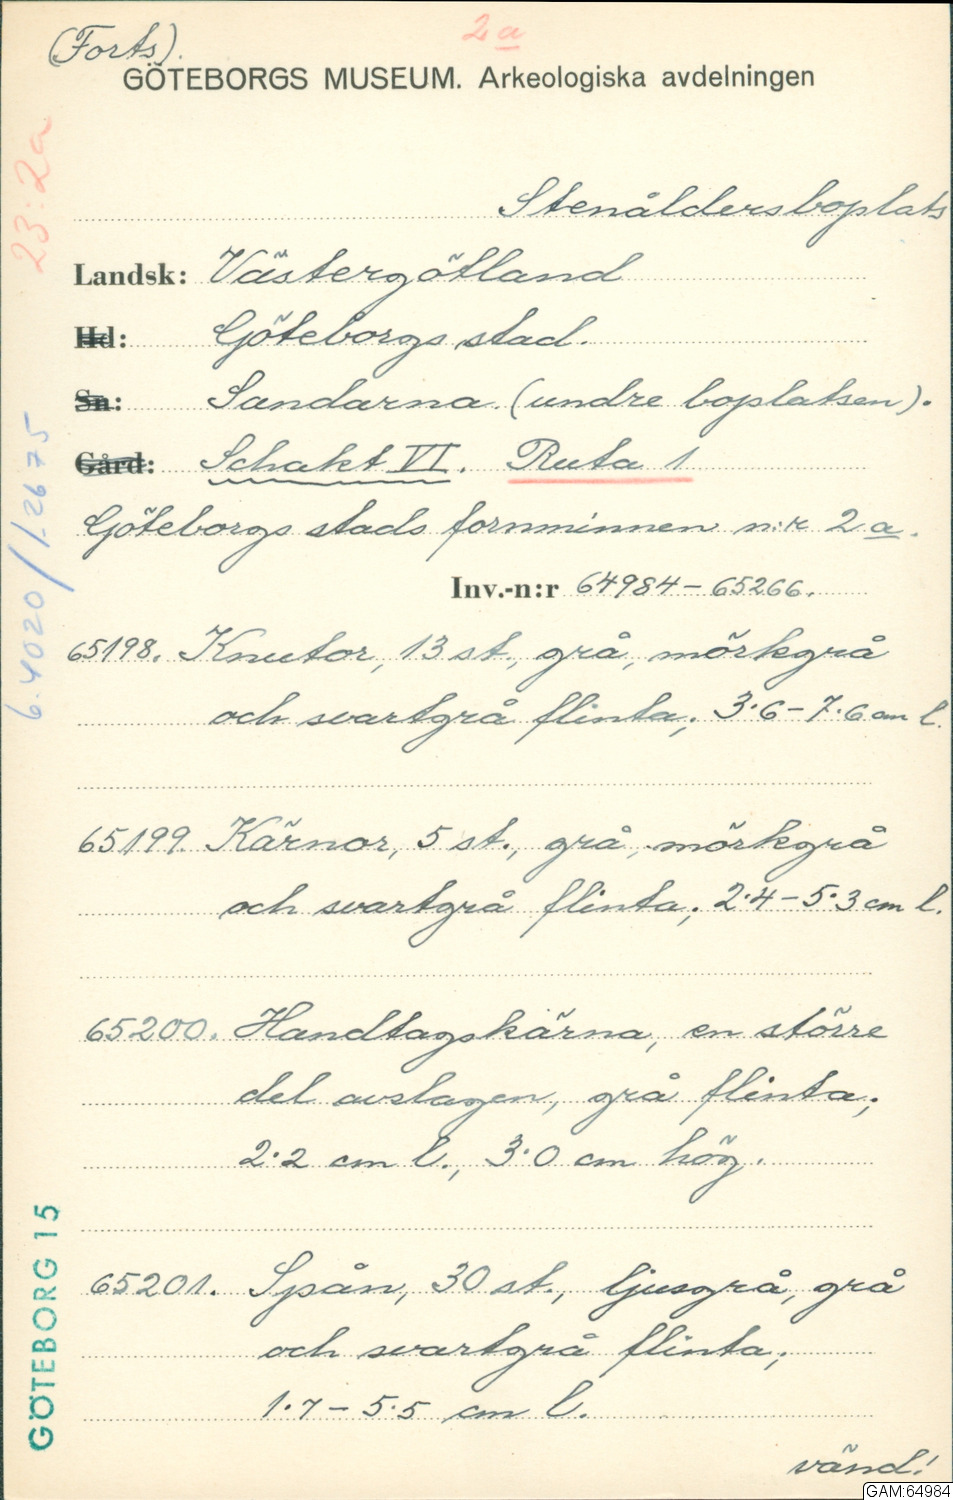 (Forts).
2a
GÖTEBORGS MUSEUM. Arkeologiska avdelningen
23:2a
Stenåldersboplats
Landsk: Västergötland
Hd: Göteborgs stad.
Sn: Sandarna (undre boplatsen).
Gård: Schakt VI. Ruta 1
Göteborgs stads fornminnen n:r 2 a.
Inv.-n:r 64984-65266.
6.4020/1.2675
65198. Knutor, 13 st., grå, mörkgrå
och svartgrå flinta; 3.6-7.6 cm l.
65199. Kärnor, 5 st., grå, mörkgrå
och svartgrå flinta; 2.4-5.3 cm l.
65200. Handtagskärna, en större
del avslagen, grå flinta;
2.2 cm l., 3.0 cm hög.
65201. Spån, 30 st., ljusgrå, grå
och svartgrå flinta;
1.7-5.5 cm l.
GÖTEBORG 15
vänd!
GAM:64984